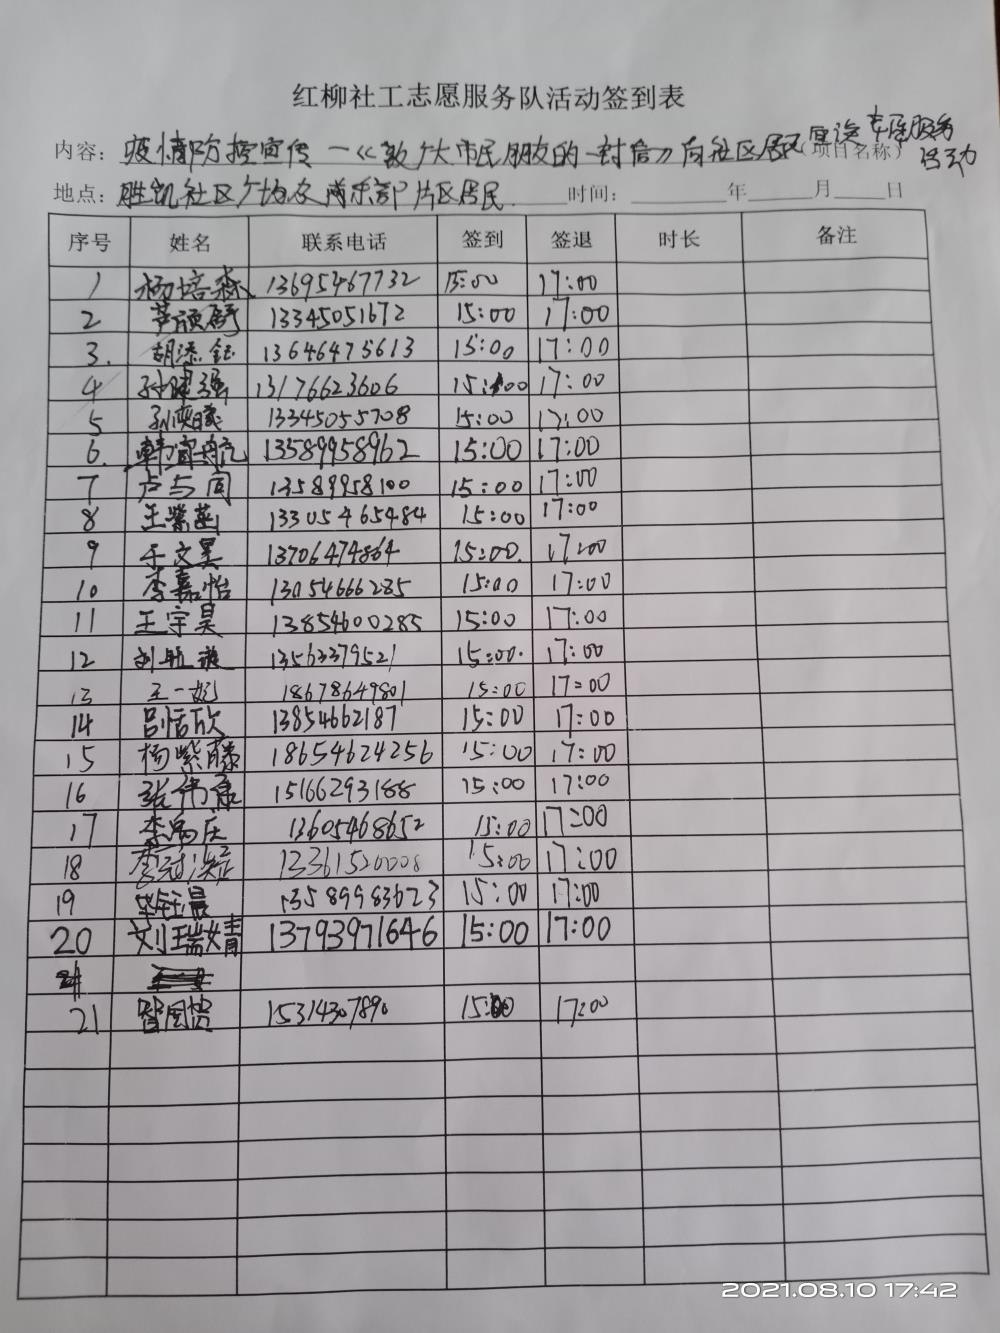 红柳社工志愿服务队活动签到表
内容：疫情防控宣传—《致广大市民朋友的一封信》向社区居民宣传志愿服务活动（项目名称）
地点：胜凯社区广场及俱乐部片区居民 时间：____年____月____日
序号 姓名 联系电话 签到 签退 时长 备注
1 杨培森 13695467732 15:00 17:00
2 13345051672 15:00 17:00
3. 胡添钰 13646475613 15:00 17:00
4 孙建强 13176623606 15:00 17:00
5 13345055708 15:00 17:00
6. 韩宜航 13589958962 15:00 17:00
7 卢与同 13589958100 15:00 17:00
8 王紫菡 13305465484 15:00 17:00
9 于文昊 13706474864 15:00. 17:00
10 李嘉怡 13054666285 15:00 17:00
11 王宇昊 13854600285 15:00 17:00
12 刘航 13563379521 15:00. 17:00
13 王一妃 18678649801 15:00 17:00
14 吕恬欣 13854662187 15:00 17:00
15 杨紫藤 18654624256 15:00 17:00
16 张伟康 15166293188 15:00 17:00
17 13605468652 15:00 17:00
18 李冠 13361520008 15:00 17:00
19 毕钰晨 13589983623 15:00 17:00
20 刘瑞婧 13793971646 15:00 17:00
21 15314307890 15:00 17:00
2021.08.10 17:42